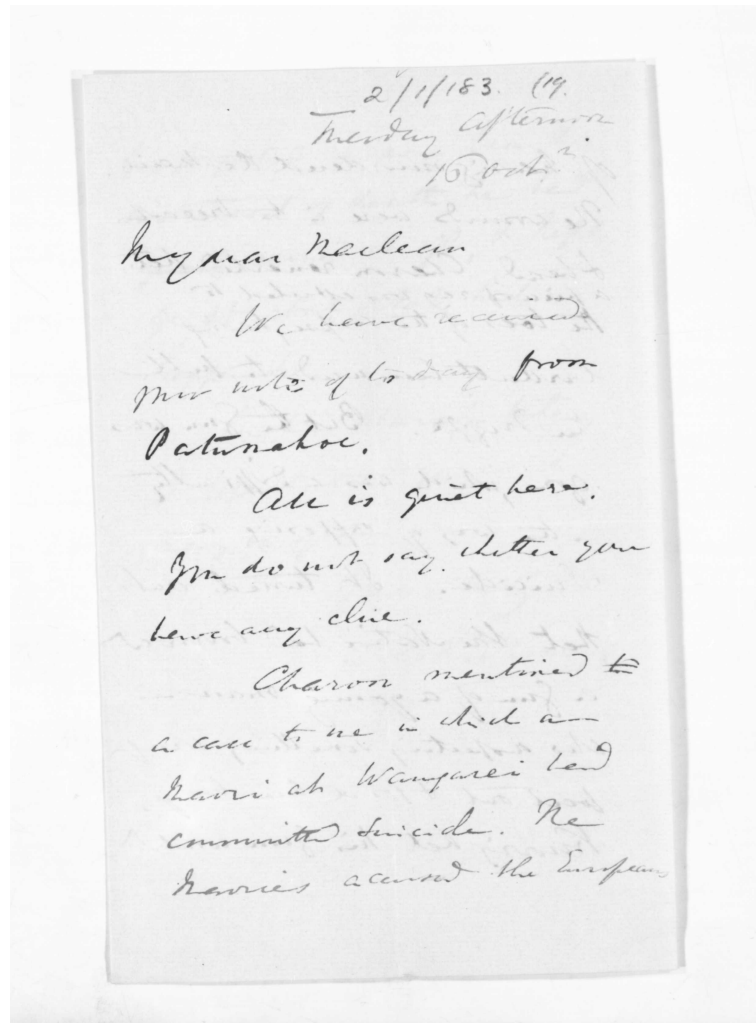 2/1/183. (19.
Tuesday afternoon
16 Octr.
My dear Maclean
We have received
your note of to day from
Patumahoe.
All is quiet here.
You do not say whether you
have any clue.
Charon mentioned to
a case to me in which a
Maori at Wangarei had
committed suicide. The
Maories accused the Europeans